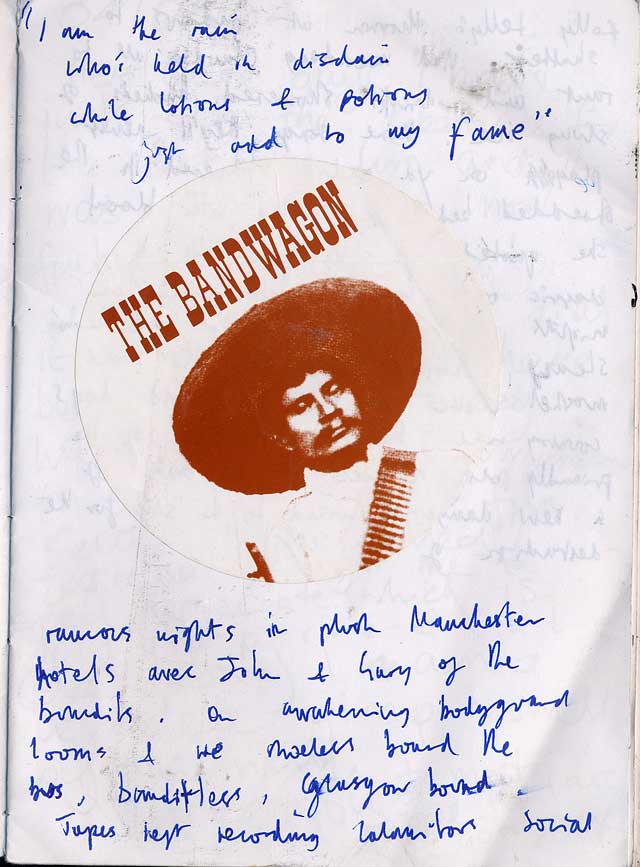 "I am the rain
who's held in disdain
while lotions & potions
just add to my fame"
THE BANDWAGON
raucous nights in plush Manchester
hotels avec John & Gary of the
bandits. On awakening bodyguard
looms & we shoeless bound the
bus, banditless, Glasgow bound.
Tapes kept recording calamitous social